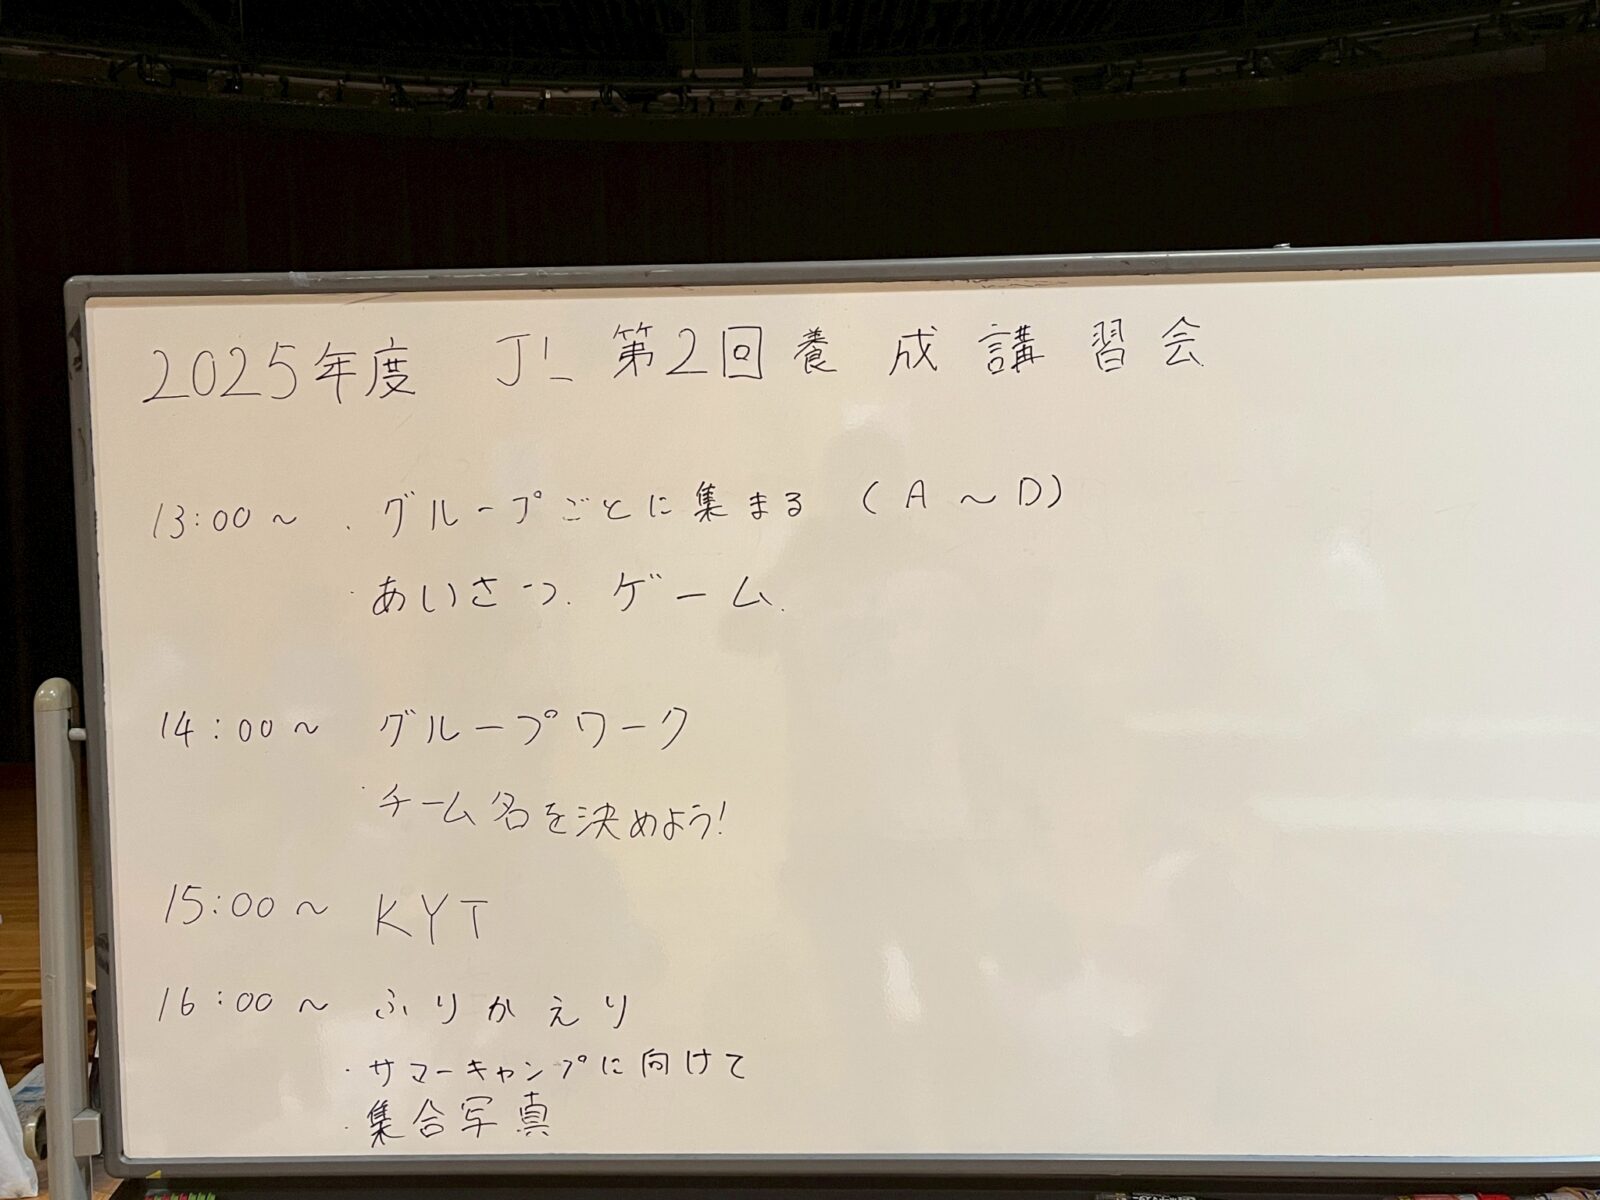 2025年度 JL 第2回養成講習会
13:00～ ・グループごとに集まる (A～D)
・あいさつ. ゲーム.
14:00～ グループワーク
・チーム名を決めよう!
15:00～ KYT
16:00～ ふりかえり
・サマーキャンプに向けて
・集合写真